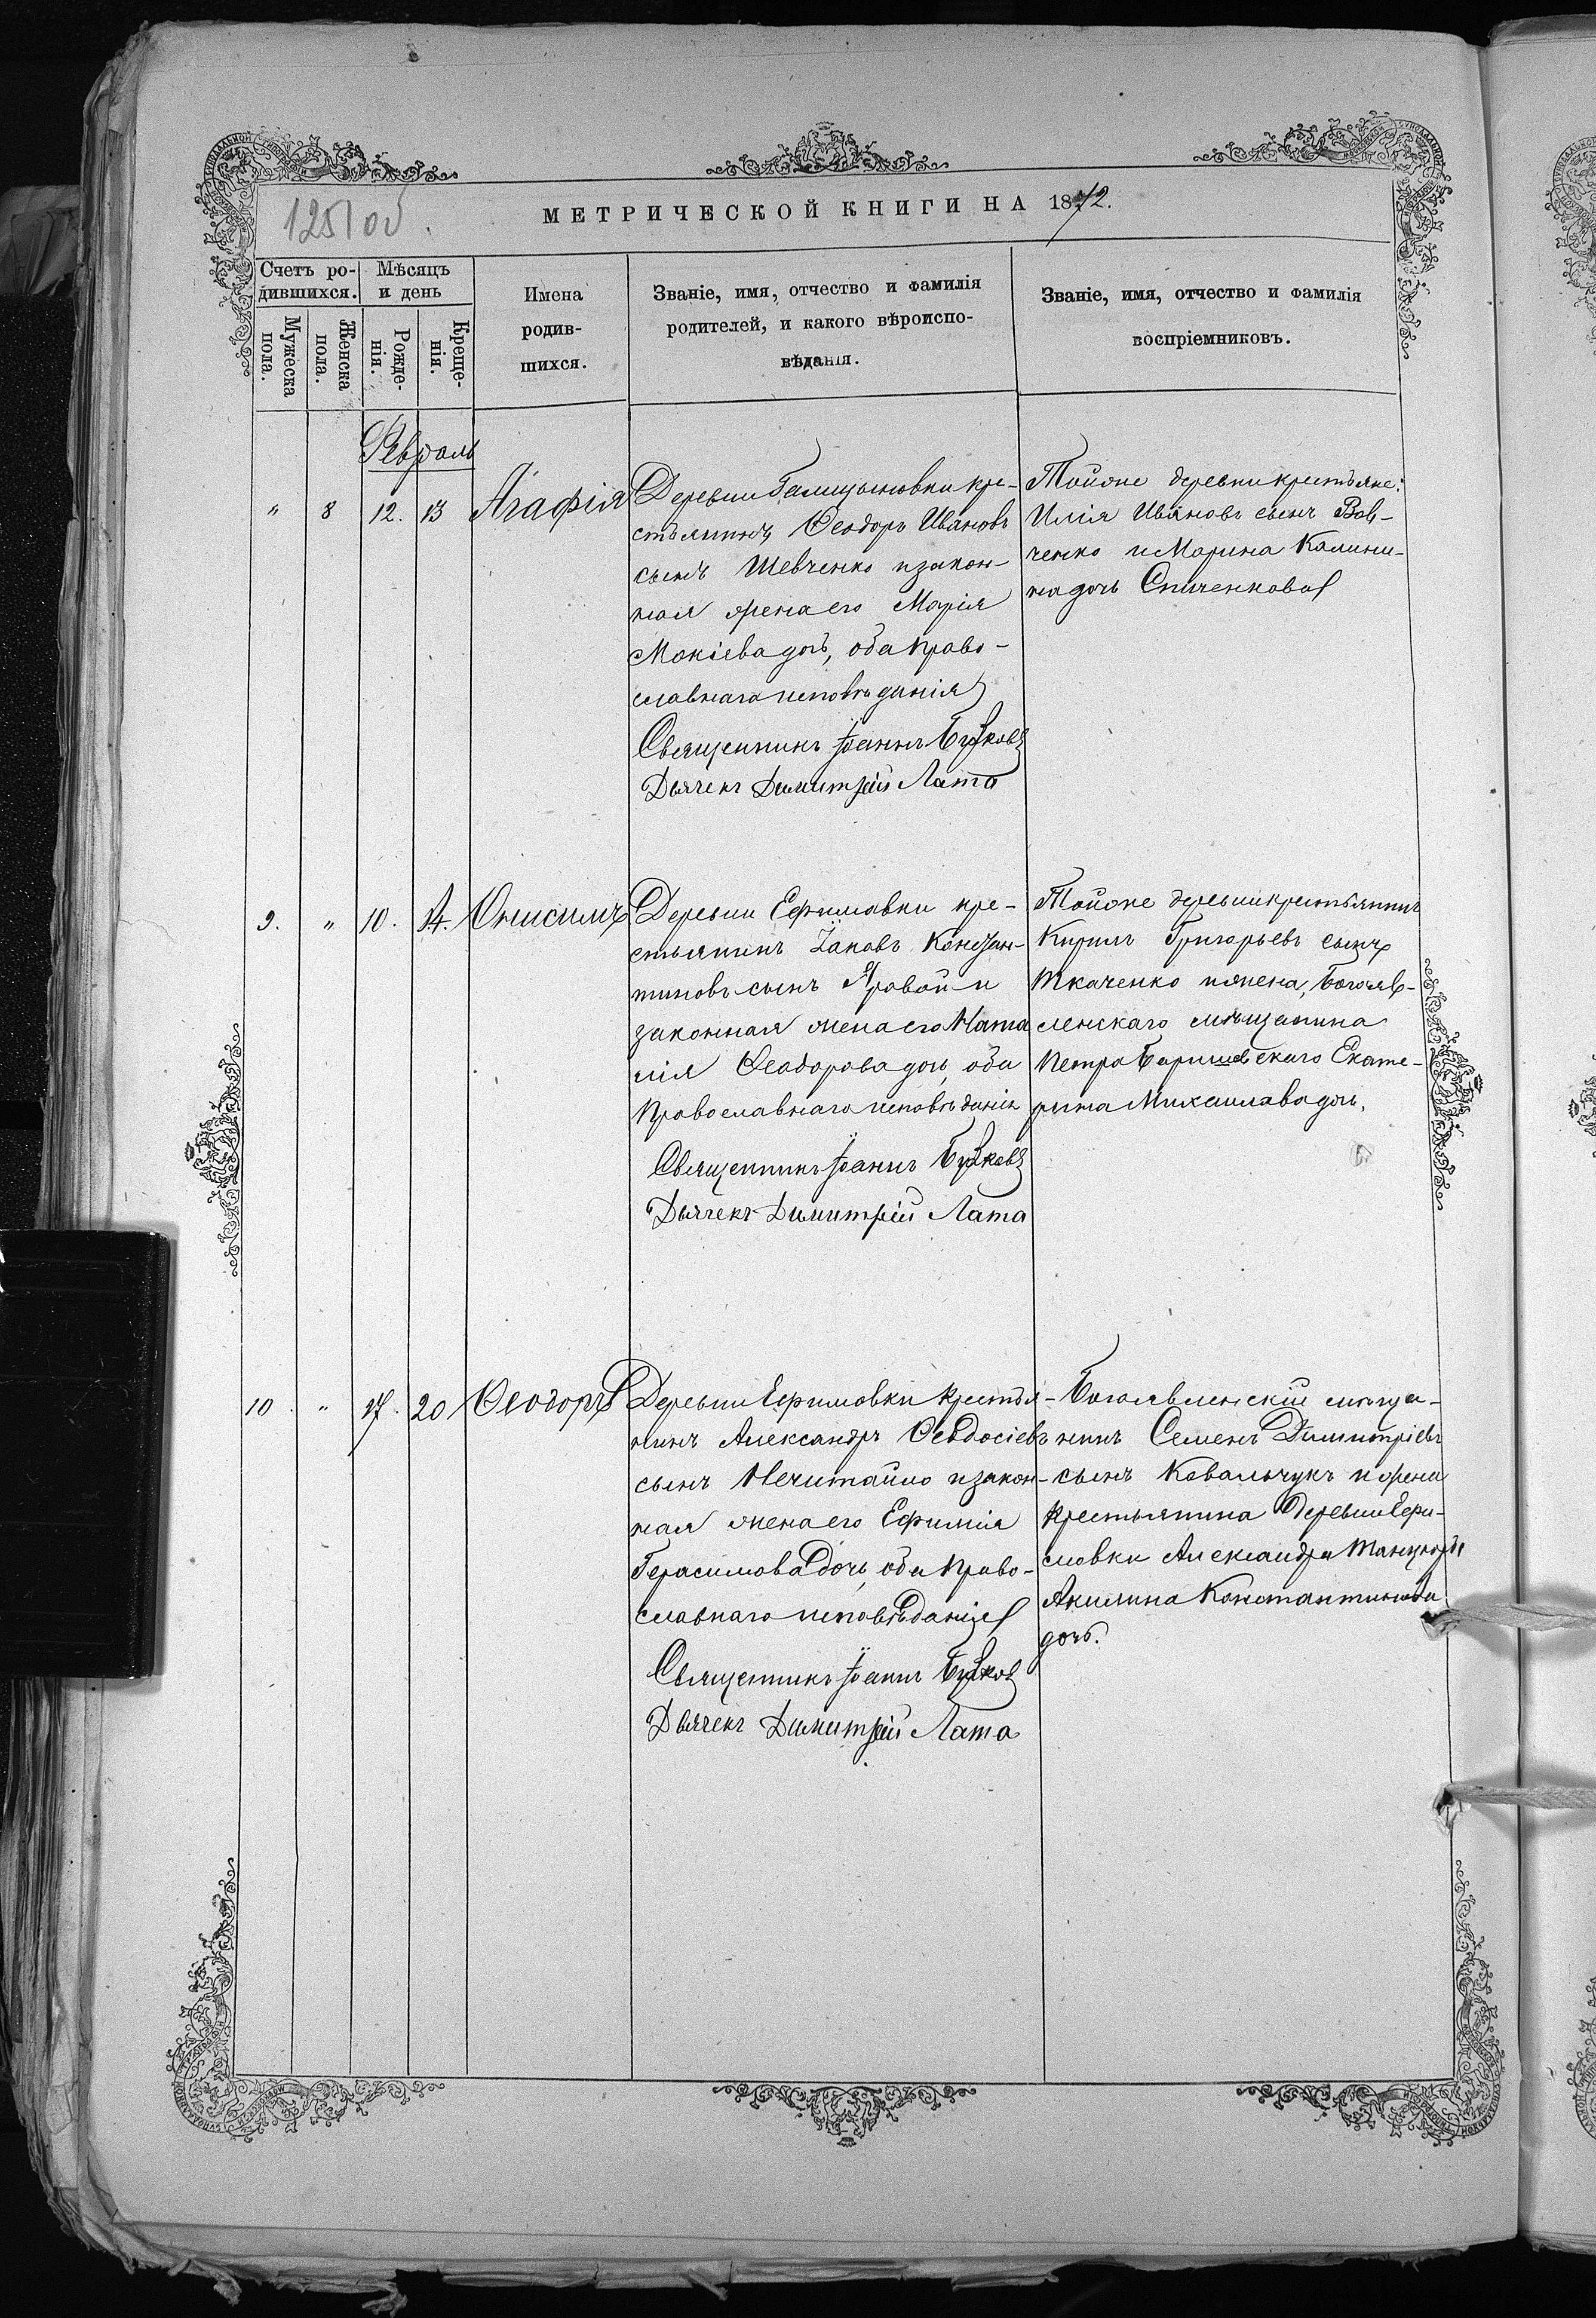 125 об.
МЕТРИЧЕСКОЙ КНИГИ НА 1872.
Счетъ ро-
дившихся.
Мѣсяцъ
и день
Мужеска
пола.
Женска
пола.
Рожде-
нія.
Креще-
нія.
Имена
родив-
шихся.
Званіе, имя, отчество и фамилія
родителей, и какого вѣроиспо-
вѣданія.
Званіе, имя, отчество и фамилія
воспріемниковъ.
Февраль
" 8 12. 13 Агафія
Деревни Голицыновки кре-
стьянинъ Ѳеодоръ Ивановъ
сынъ Шевченко и закон-
ная жена его Марія
Мокіева дочь, оба право-
славнаго исповѣданія
Священникъ Іоаннъ
Дьячекъ Димитрій Лата
Тойже деревни крестьяне:
Илія Ивановъ сынъ Вов-
ченко и Марина Калини-
на дочь Спиченкова
9. " 10. 14. Онисимъ
Деревни Ефимовки кре-
стьянинъ Іаковъ Констан-
тиновъ сынъ Яровой и
законная жена его Ната
лія Ѳеодорова дочь, оба
православнаго исповѣданія
Священникъ Іоаннъ
Дьячекъ Димитрій Лата
Тойже деревни крестьянинъ
Кирилъ Григорьевъ сынъ
Ткаченко и жена, Богояв-
ленскаго мѣщанина
Петра Баришевскаго Екате-
рина Михаилова дочь.
10. " 17. 20 Ѳеодоръ
Деревни Ефимовки крестья-
нинъ Александръ Ѳеодосіевъ
сынъ Нечитайло и закон-
ная жена его Ефимія
Герасимова дочь, оба право-
славнаго исповѣданія
Священникъ Іоаннъ
Дьячекъ Димитрій Лата
Богоявленскій мѣща-
нинъ Семенъ Димитріевъ
сынъ Ковальчукъ и жена
крестьянина деревни Ефи-
мовки Александра
Акилина Константинова
дочь.